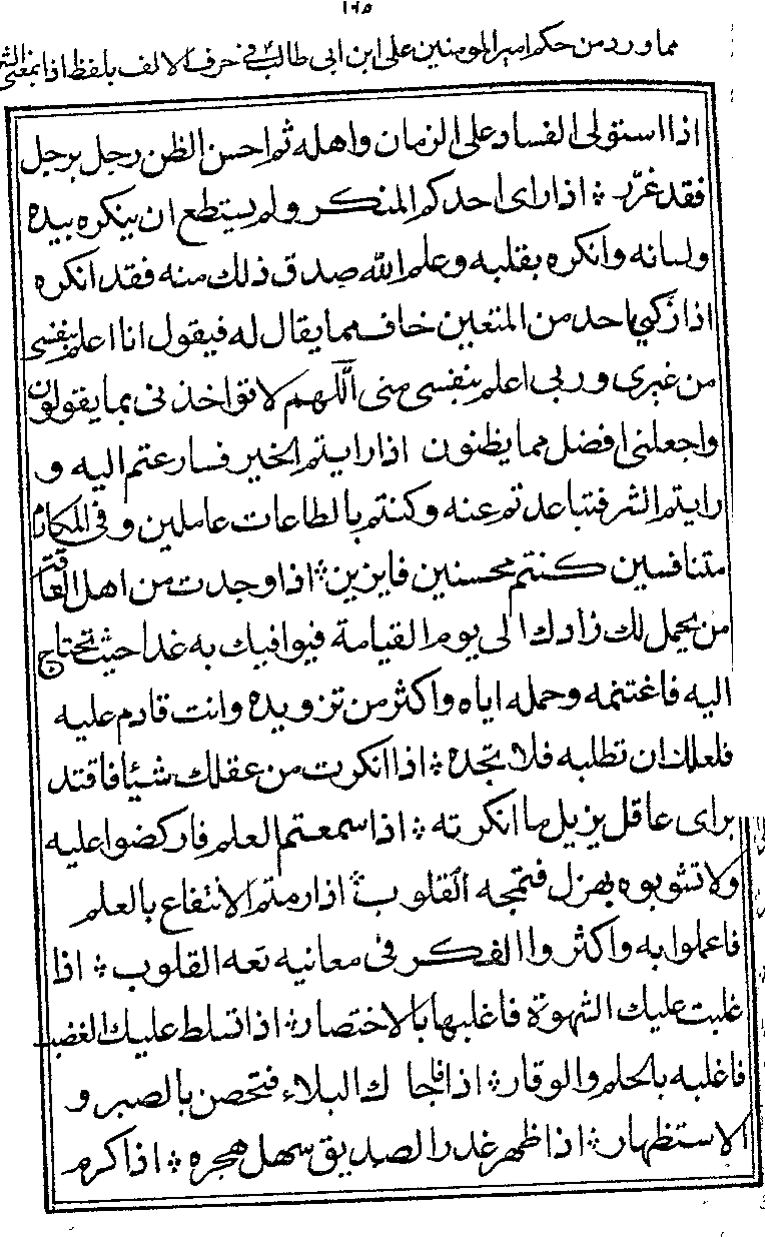 ١٦٥
مما ورد من حكم امير المومنين على ابن ابى طالب فى حرف الالف بلفظ اذا بمعنى الشر
اذا استولى الفساد على الزمان واهله ثم احسن الظن رجل برجل
فقد غرّر ؞ اذا راى احدكم المنكر ولم يستطع ان ينكره بيده
ولسانه وانكره بقلبه وعلم الله صدق ذلك منه فقد انكره
اذا زكي احد من المتقين خاف مما يقال له فيقول انا اعلم بنفسى
من غيرى وربى اعلم بنفسى منى اللهم لا تواخذنى بما يقولون
واجعلنى افضل مما يظنون اذا رايتم الخير فسارعتم اليه و
رايتم الشر فتباعدتم عنه وكنتم بالطاعات عاملين وفى المكارم
متنافسين كنتم محسنين فايزين ؞ اذا وجدت من اهل الفاقة
من يحمل لك زادك الى يوم القيامة فيوافيك به غدا حيث تحتاج
اليه فاغتنمه وحمله اياه واكثر من تزويده وانت قادم عليه
فلعلك ان تطلبه فلا تجده ؞ اذا انكرت من عقلك شيئا فاقتد
براى عاقل يزيل ما انكرته ؞ اذا سمعتم العلم فاركضوا عليه
ولا تشوبوه بهزل فتمجه القلوب ؞ اذا رمتم الانتفاع بالعلم
فاعملوا به واكثروا الفكر فى معانيه تعه القلوب ؞ اذا
غلبت عليك الشهوة فاغلبها بالاختصار ؞ اذا تسلط عليك الغضب
فاغلبه بالحلم والوقار ؞ اذا فاجاك البلاء فتحصن بالصبر و
الاستظهار ؞ اذا ظهر غدر الصديق سهل هجره ؞ اذا كرم